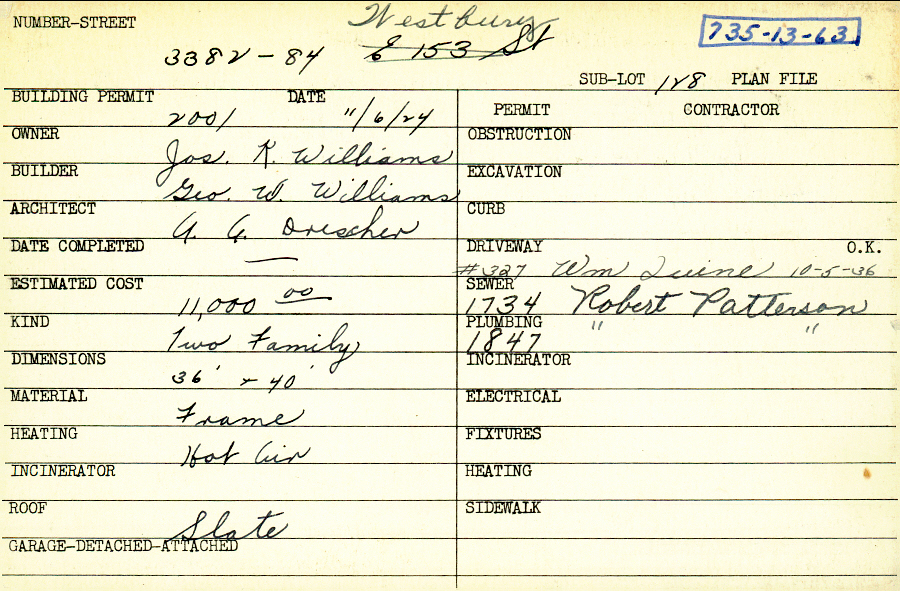 Westbury
NUMBER-STREET 3382-84 E 153 St 735-13-63
SUB-LOT 128 PLAN FILE
BUILDING PERMIT 2001 DATE 11/6/24
PERMIT CONTRACTOR
OWNER Jos. K. Williams
OBSTRUCTION
BUILDER Geo. W. Williams
EXCAVATION
ARCHITECT A. G. Drescher
CURB
DATE COMPLETED —
DRIVEWAY #327 Wm Quine 10-5-36 O.K.
ESTIMATED COST 11,000 00
SEWER 1734 Robert Patterson
KIND Two Family
PLUMBING 1847 " "
DIMENSIONS 36' x 40'
INCINERATOR
MATERIAL Frame
ELECTRICAL
HEATING Hot Air
FIXTURES
INCINERATOR
HEATING
ROOF Slate
SIDEWALK
GARAGE-DETACHED-ATTACHED